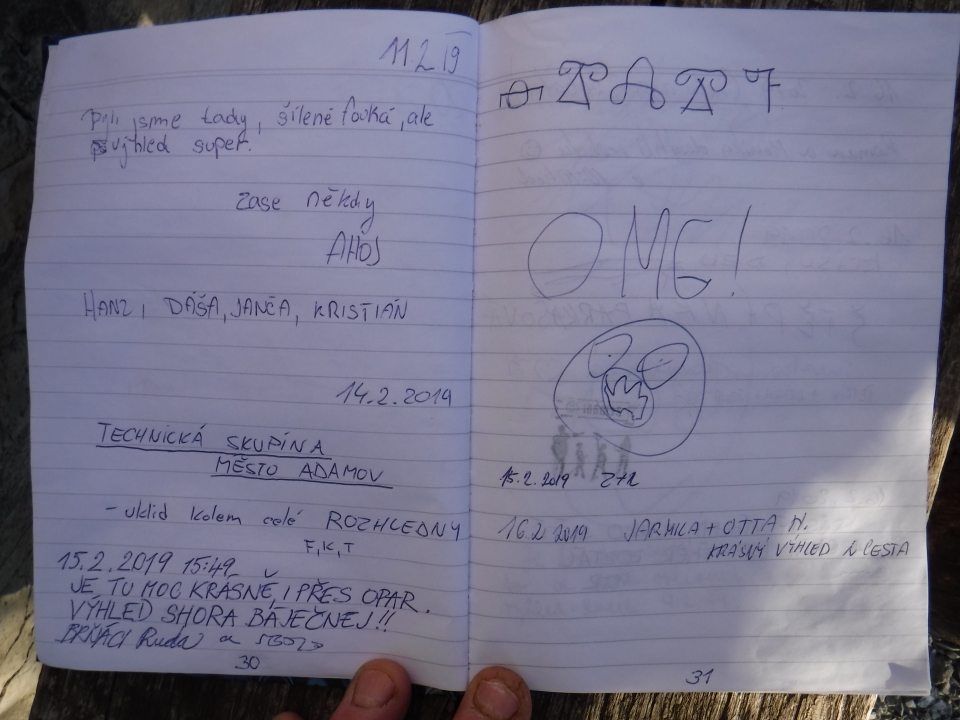 11.2 19
Byli jsme tady, šíleně fouká, ale
výhled super.
Zase někdy
AHOJ
HANZ, DÁŠA, JANČA, KRISTIÁN
14.2.2019
TECHNICKÁ SKUPINA
MĚSTO ADAMOV
- uklid kolem celé ROZHLEDNY
F, K, T
15.2.2019 15:49
JE TU MOC KRÁSNĚ, I PŘES OPAR.
VÝHLED SHORA BÁJEČNEJ!!
BRŇÁCI Ruda a
30
OMG!
15.2.2019 Z+R
16.2 2019 JARMILA + OTTA H.
KRÁSNÝ VÝHLED I CESTA
31